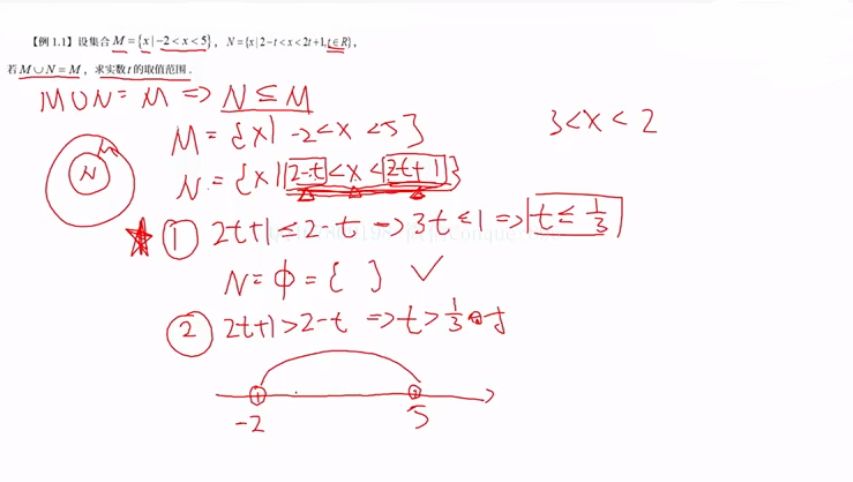 【例 1.1】设集合 M={x|-2<x<5}，N={x|2-t<x<2t+1,t∈R}，
若 M∪N=M，求实数 t 的取值范围．
M∪N= M => N⊆M
3<x<2
M={x| -2<x<5}
N
N={x|2-t<x<2t+1}
① 2t+1≤2-t => 3t≤1 => t≤1/3
N=φ={ } ✓
② 2t+1>2-t => t>1/3 时
-2 5